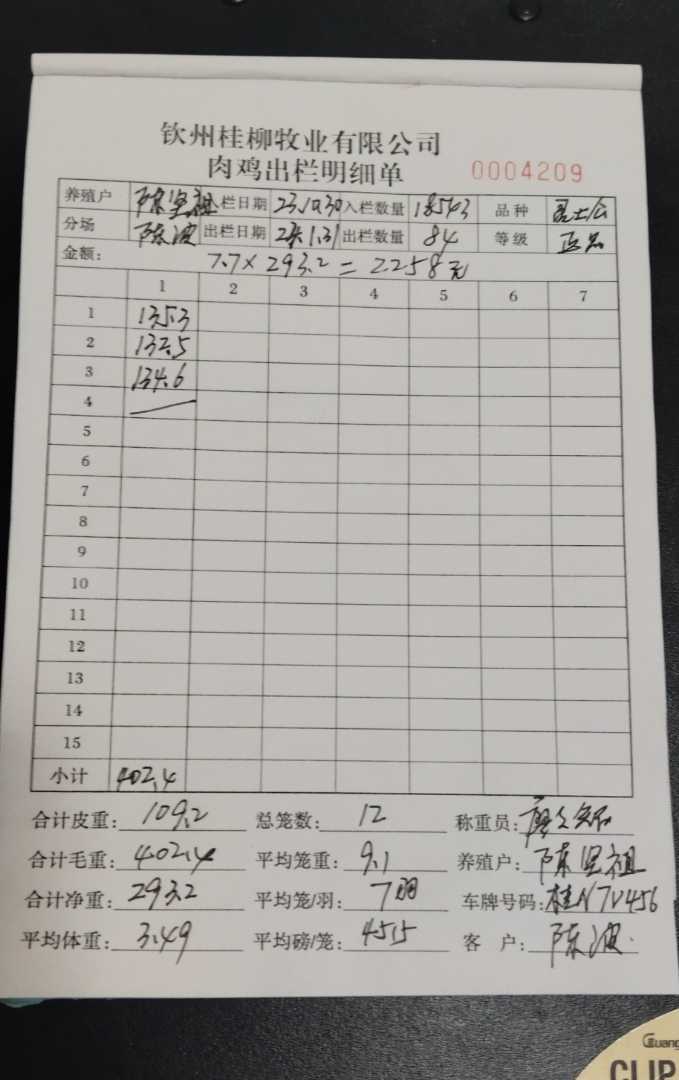 钦州桂柳牧业有限公司
肉鸡出栏明细单 0004209
养殖户 陈坚祖 栏日期 23.10.30 入栏数量 18543 品种
分场 陈波 出栏日期 24.1.31 出栏数量 84 等级 正品
金额: 7.7×293.2=2258元
1 2 3 4 5 6 7
1 135.3
2 132.5
3 134.6
4
5
6
7
8
9
10
11
12
13
14
15
小计 402.4
合计皮重: 109.2 总笼数: 12 称重员:
合计毛重: 402.4 平均笼重: 9.1 养殖户: 陈坚祖
合计净重: 293.2 平均笼/羽: 7羽 车牌号码: 桂N7V456
平均体重: 3.49 平均磅/笼: 45.15 客户: 陈波
Guang
CLIP